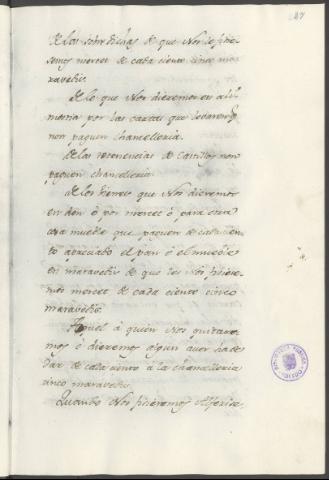 47
de los sobre dichas de que Nos les ficie-
semos merced de cada ciento cinco ma-
ravedis.
De lo que Nos dieremos en ali-
mosna por las cartas que levaren
non paguen chancelleria.
De las tenencias de Castillos non
paguen chancelleria.
De los que Nos dieremos
en don ó por merced ó para otra
cosa mueble que paguen de cada cien-
to apreciado el pan ó el mueble
en maravedis de que les Nos ficiere-
mos merced de cada ciento cinco
maravedis.
Aquel á quien Nos quitare-
mos ó dieremos algun aver ha de
dar de cada ciento á la chancelleria
cinco maravedis.
Quando Nos ficieremos Alferez,